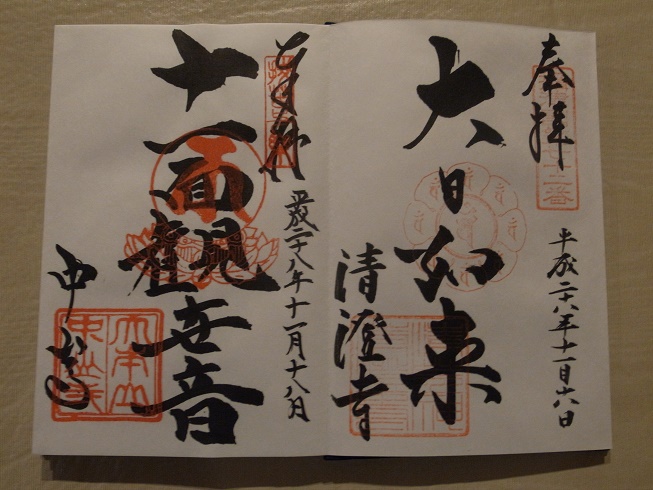 奉拝
大日如来
平成二十八年十一月十八日
清澄寺
奉拝
十一面観世音
平成二十八年十一月十八日
中山寺